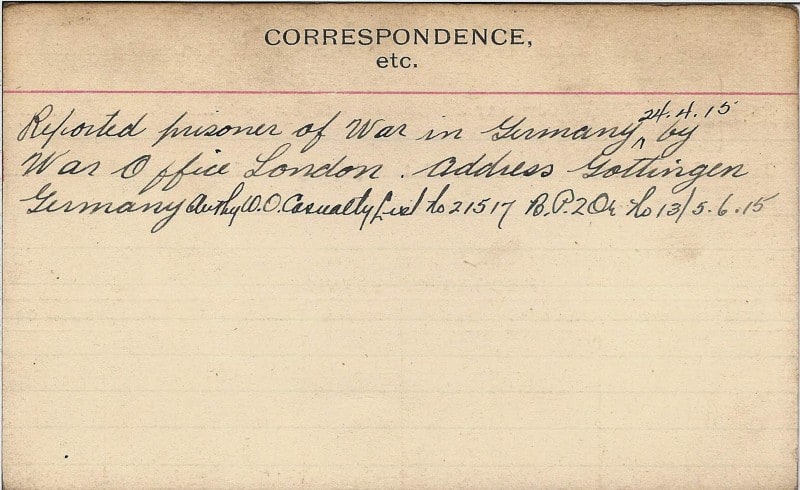 CORRESPONDENCE,
etc.
24.4.15
Reported prisoner of War in Germany ^ by
War Office London. Address Gottingen
Germany Authy W.O. Casualty List No 21517 B.P.2 Or No 13/5.6.15